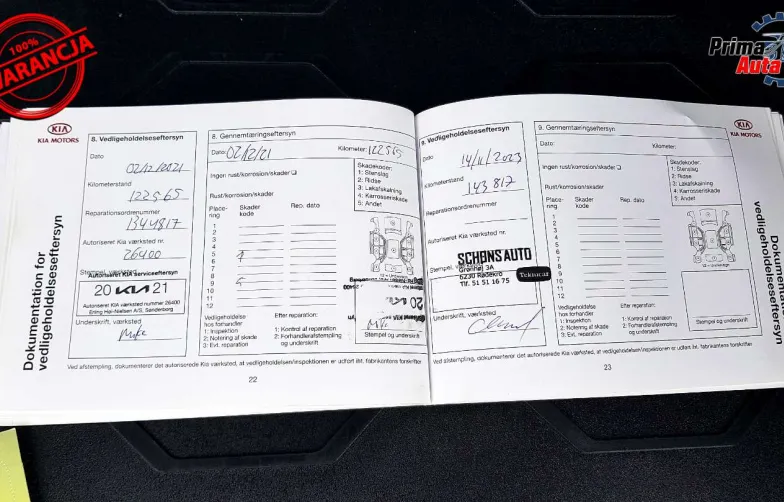 100%
WARANCJA
Prima
Auta
KIA
KIA MOTORS
Dokumentation for
vedligeholdelseseftersyn
8. Vedligeholdelseseftersyn
Dato
02/12/2021
Kilometerstand
122565
Reparationsordrenummer
1344817
Autoriseret Kia værksted nr.
26400
Stempel, værksted
Autoriseret KIA Serviceeftersyn
20 KIA 21
Autoriseret KIA værksted nummer 26400
Underskrift, værksted
8. Gennemtæringseftersyn
Dato: 02/12/21
Kilometer: 122565
Ingen rust/korrosion/skader
Rust/korrosion/skader
Place-
ring
Skader
kode
Rep. dato
1
2
3
4
5
6
7
8
9
10
11
12
Skadekoder:
1: Stenslag
2: Ridse
3: Lakafskalning
4: Karrosseriskade
5: Andet
Vedligeholdelse
hos forhandler
1: Inspektion
2: Notering af skade
3: Evt. reparation
Efter reparation:
1: Kontrol af reparation
2: Forhandlerafstempling
og underskrift
Stempel og underskrift
Ved afstempling, dokumenterer det autoriserede Kia værksted, at vedligeholdelsen/inspektionen er udført iht. fabrikantens forskrifter
22
9. Vedligeholdelseseftersyn
Dato
14/11/2023
Kilometerstand
143817
Reparationsordrenummer
Autoriseret Kia værksted nr.
Stempel,
SCHØNS AUTO
Grønnej 3A
6230 Rødekro
Tlf. 51 51 16 75
Teknicar
Underskrift, værksted
9. Gennemtæringseftersyn
Dato:
Kilometer:
Ingen rust/korrosion/skader
Rust/korrosion/skader
Place-
ring
Skader
kode
Rep. dato
1
2
3
4
5
6
7
8
9
10
11
12
Skadekoder:
1: Stenslag
2: Ridse
3: Lakafskalning
4: Karrosseriskade
5: Andet
Vedligeholdelse
hos forhandler
1: Inspektion
2: Notering af skade
3: Evt. reparation
Efter reparation:
1: Kontrol af reparation
2: Forhandlerafstempling
og underskrift
Stempel og underskrift
Ved afstempling, dokumenterer det autoriserede Kia værksted, at vedligeholdelsen/inspektionen er udført iht. fabrikantens forskrifter
23
KIA
KIA MOTORS
Dokumentation for
vedligeholdelseseftersyn